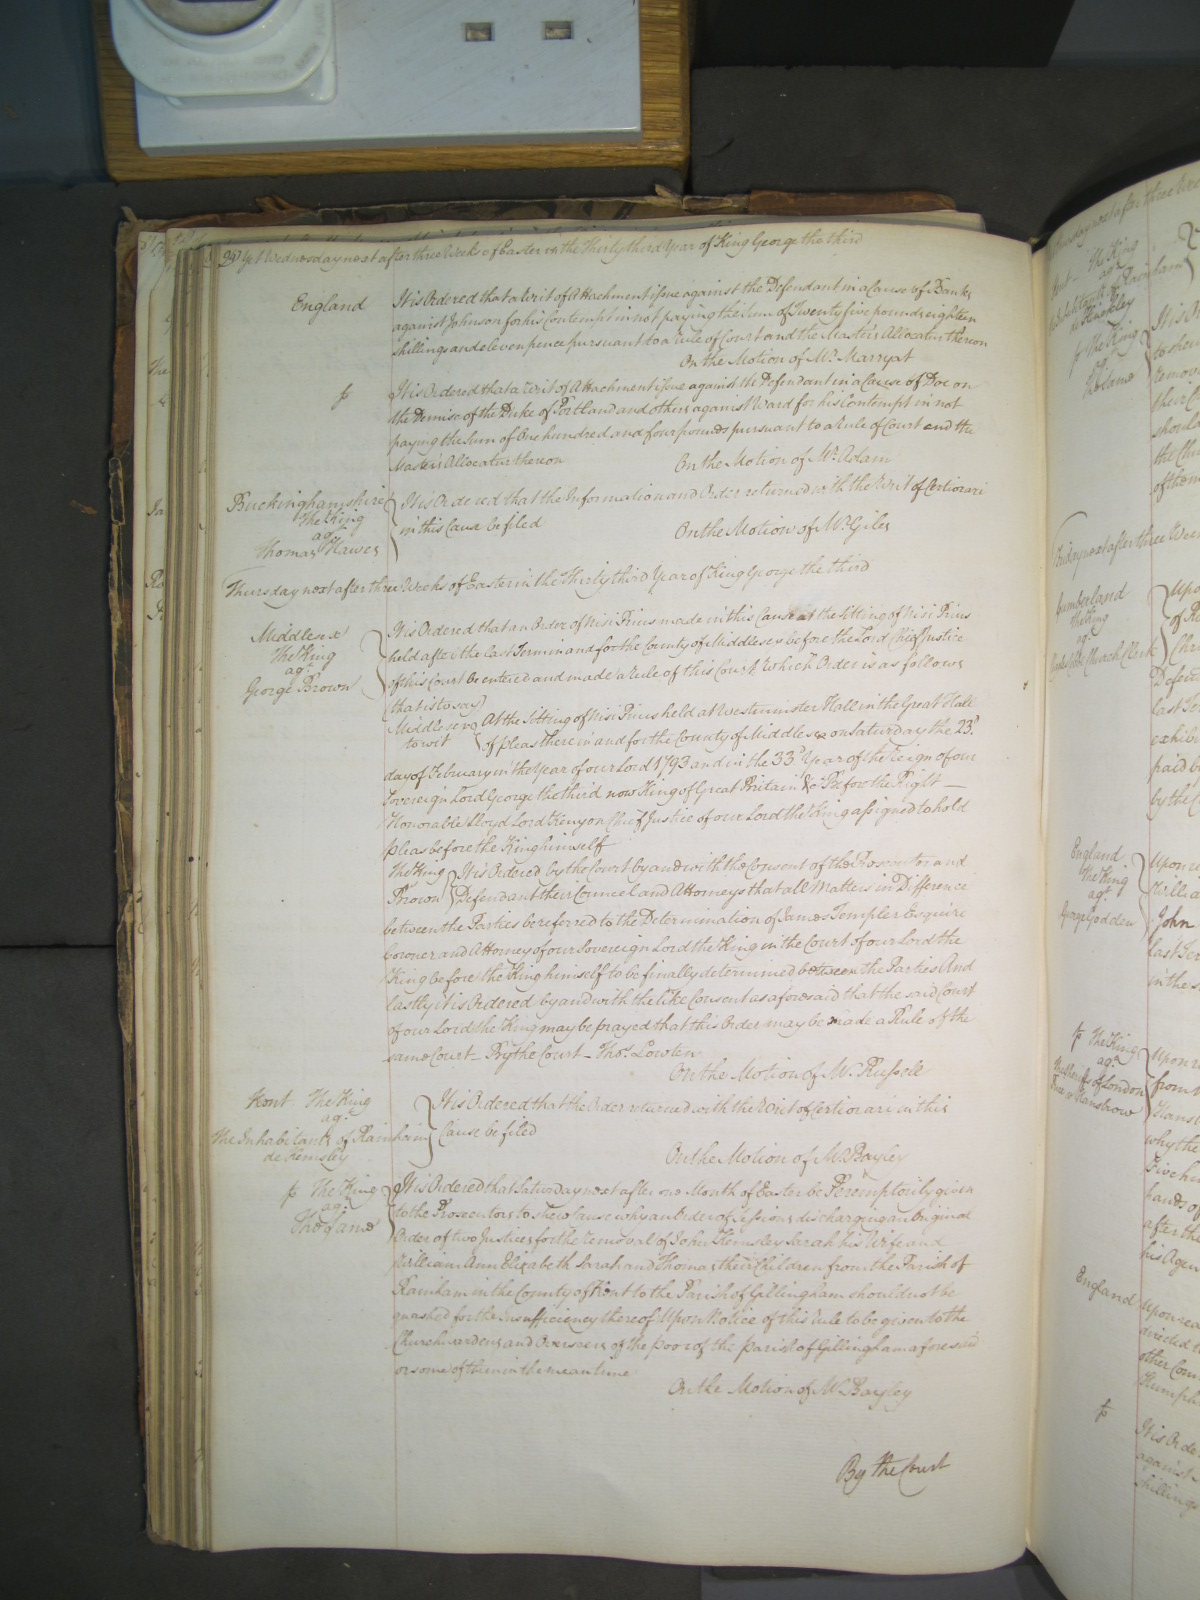 Yet Wednesday next after three Weeks of Easter in the Thirty third Year of King George the third
England
It is Ordered that a Writ of Attachment issue against the Defendant in a Cause of Banks
against Johnson for his Contempt in not paying the Sum of Twenty five pounds eighteen
shillings and eleven pence pursuant to a rule of Court and the Masters Allocatur thereon
On the Motion of Mr. Marryat
It is Ordered that a Writ of Attachment issue against the Defendant in a Cause of Doe on
the Demise of the Duke of Portland and others against Ward for his Contempt in not
paying the Sum of One hundred and four pounds pursuant to a Rule of Court and the
Masters Allocatur thereon
On the Motion of Mr. Adam
Buckinghamshire
The King
agt.
Thomas Hawes
It is Ordered that the Information and Order returned with the Writ of Certiorari
in this Cause be filed
On the Motion of Mr. Giles
Thursday next after three Weeks of Easter in the Thirty third Year of King George the third
Middlesex
The King
agt.
George Brown
It is Ordered that an Order of Nisi Prius made in this Cause at the Sitting of Nisi Prius
held after the last Term in and for the County of Middlesex before the Lord Chief Justice
of this Court be entered and made a Rule of this Court which Order is as follows
(that is to say)
Middlesex
to wit
At the Sitting of Nisi Prius held at Westminster Hall in the Great Hall
of pleas there in and for the County of Middlesex on Saturday the 23d.
day of February in the Year of our Lord 1793 and in the 33d Year of the Reign of our
Sovereign Lord George the third now King of Great Britain &c. Before the Right
Honorable Lloyd Lord Kenyon Chief Justice of our Lord the King assigned to hold
pleas before the King himself
The King
Brown
It is Ordered by the Court by and with the Consent of the Prosecutor and
Defendant their Councel and Attorneys that all Matters in Difference
between the Parties be referred to the Determination of James Templer Esquire
Coroner and Attorney of our Sovereign Lord the King in the Court of our Lord the
King before the King himself to be finally determined between the Parties And
lastly it is Ordered by and with the like Consent as aforesaid that the said Court
of our Lord the King may be prayed that this Order may be made a Rule of the
same Court – By the Court – Thos. Lowten
On the Motion of Mr. Russell
Kent The King
agt.
The Inhabitants of Rainham
de Kemsley
It is Ordered that the Order returned with the Writ of Certiorari in this
Cause be filed
On the Motion of Mr. Bayley
The King
agt.
The Same
It is Ordered that Saturday next after one Month of Easter be Peremptorily given
to the Prosecutors to shew cause why an Order of Sessions discharging an Original
Order of two Justices for the removal of John Kemsley Sarah his Wife and
William Ann Elizabeth Sarah and Thomas their Children from the Parish of
Rainham in the County of Kent to the Parish of Gillingham should not be
quashed for the Insufficiency thereof Upon Notice of this Rule to be given to the
Churchwardens and Overseers of the poor of the parish of Gillingham aforesaid
or some of them in the mean time
On the Motion of Mr. Bayley
By the Court
The King
agt.
Rainham
de Kemsley
The King
agt.
The Same
It is
to shew
removal
the Chu
of them
Friday next after three Weeks
Cumberland
The King
agt.
Church Clerk
Upon
of
Chri
Defend
last
exhibi
paid
by the
England
The King
agt.
George Godden
Upon
Willia
John
last Ter
in the
The King
agt.
of London
Upon
from
why the
Five hun
hands of
after the
his Agen
England
Upon rea
directed
other Coun
Humph
It is Orde
against
shillings